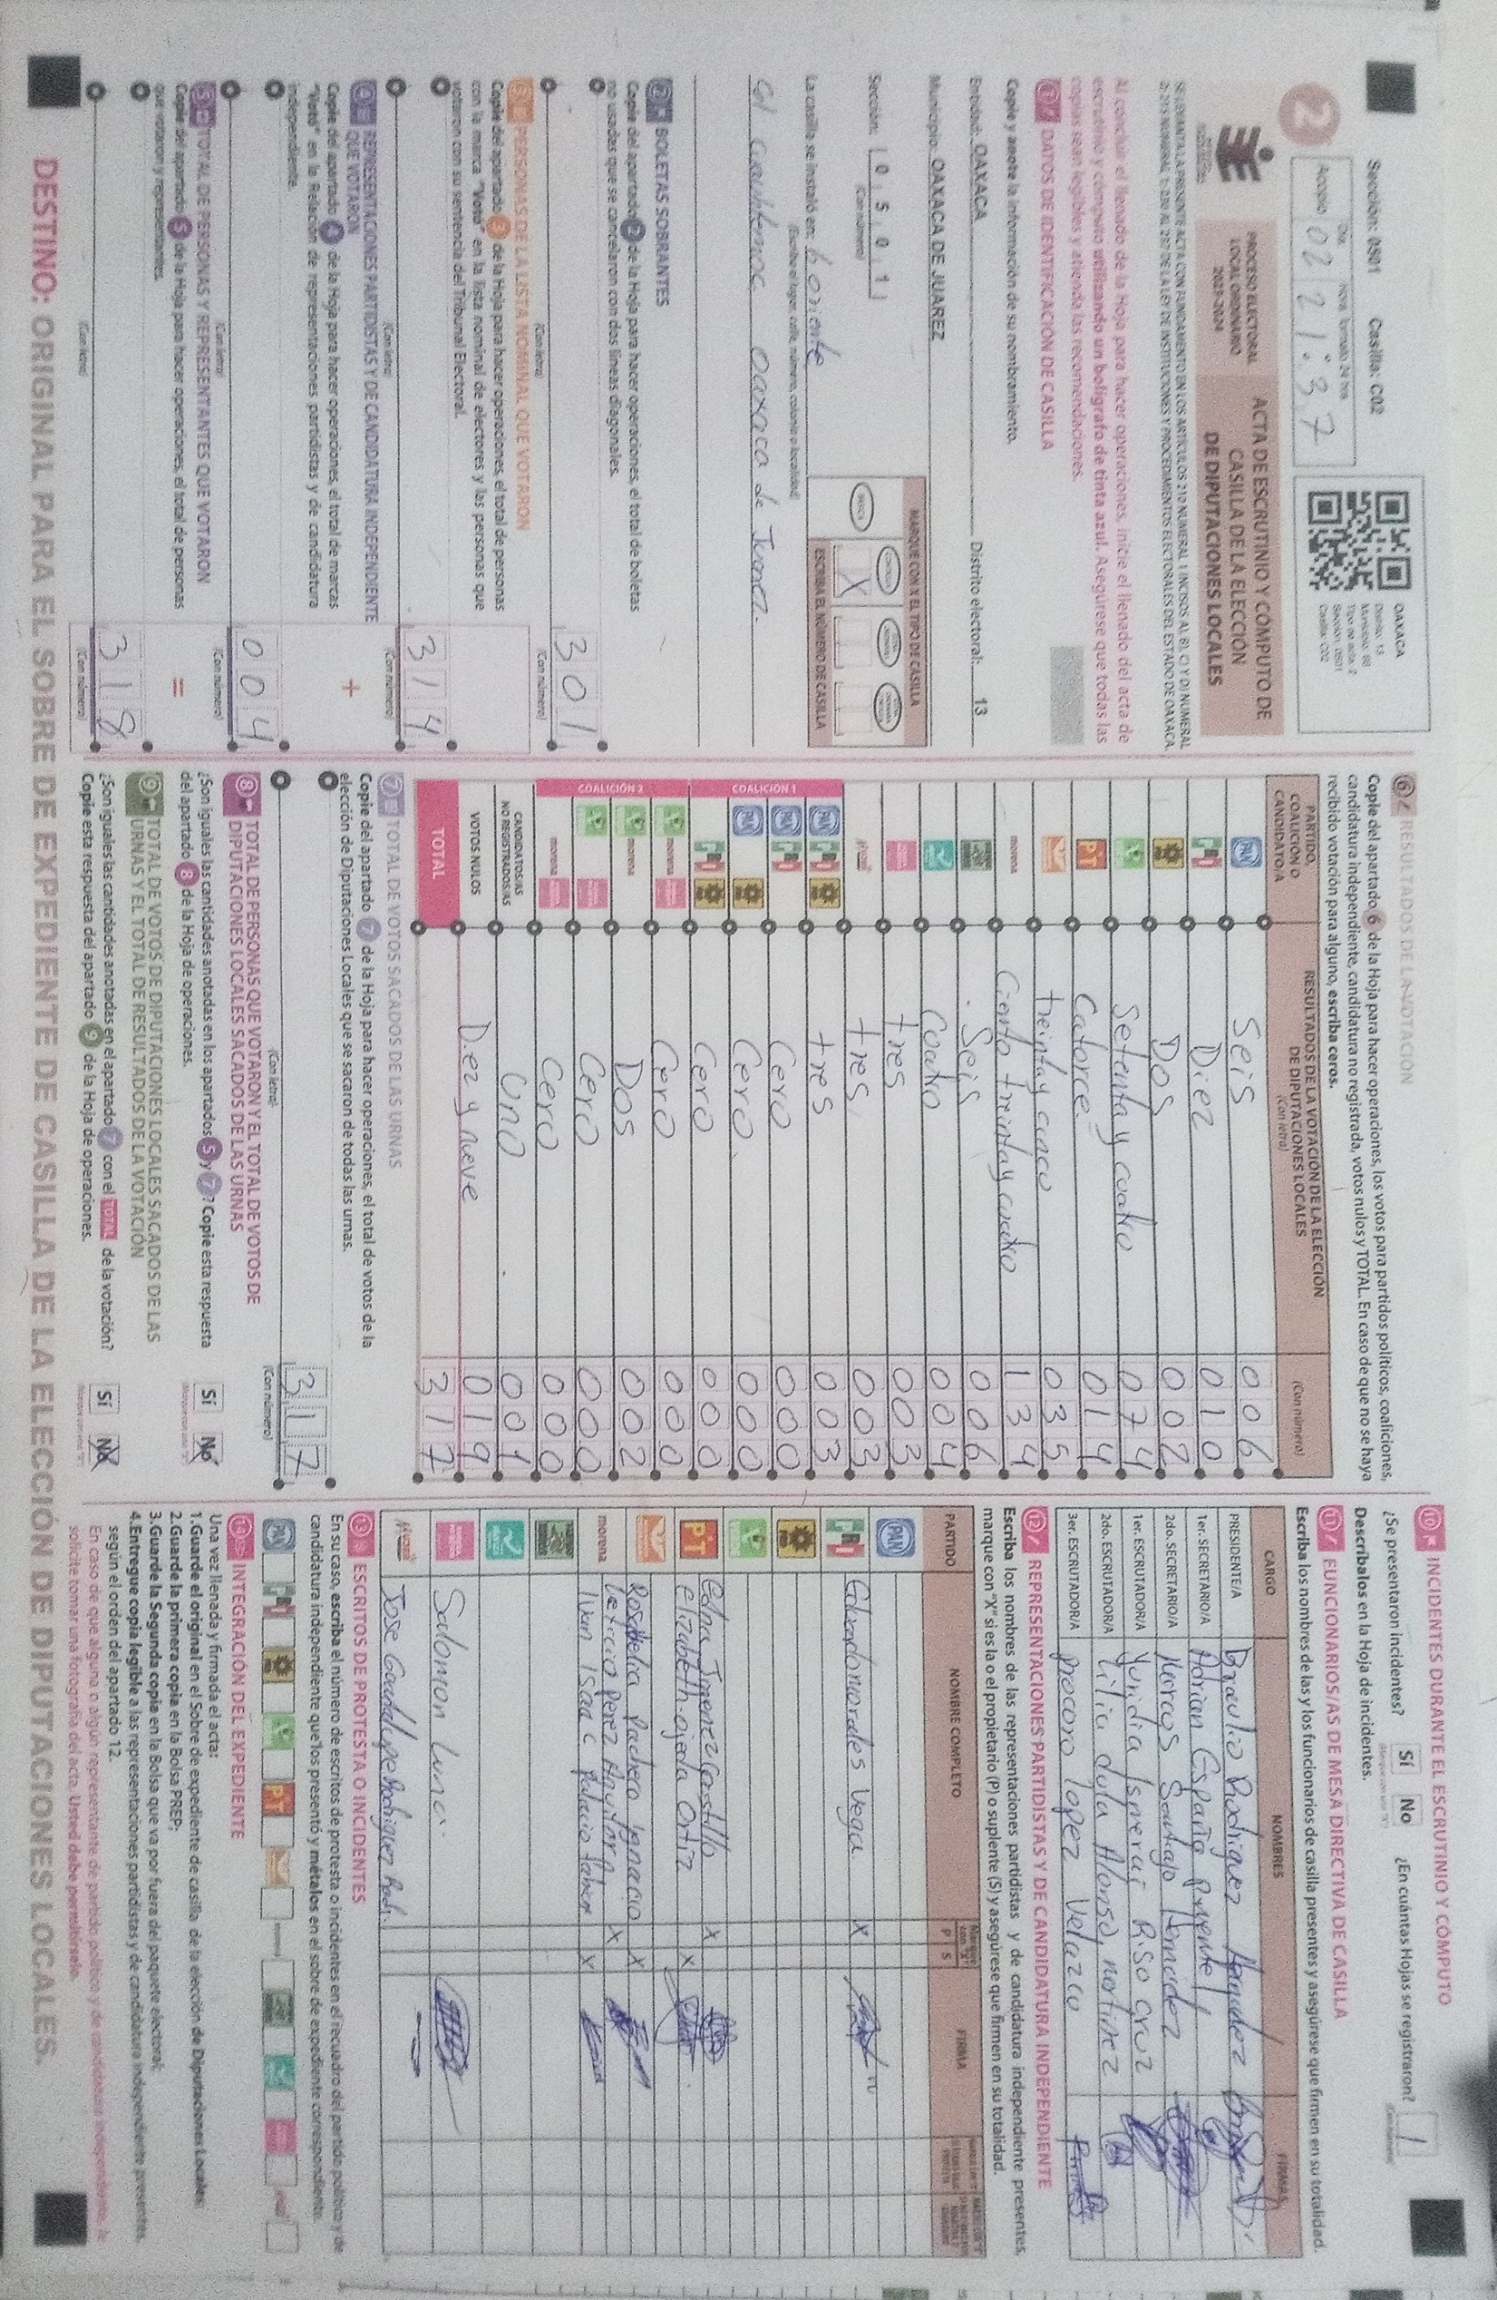 Sección: 0501 Casilla: C02
Acopio 02 21:37
Día Hora formato 24 hrs
OAXACA
Distrito: 13
Tipo de acta: 2
Sección: 0501
Casilla: C02
2
PROCESO ELECTORAL
LOCAL ORDINARIO
2023-2024
ACTA DE ESCRUTINIO Y CÓMPUTO DE
CASILLA DE LA ELECCIÓN
DE DIPUTACIONES LOCALES
Al concluir el llenado de la Hoja para hacer operaciones, inicie el llenado del acta de
escrutinio y cómputo utilizando un bolígrafo de tinta azul. Asegúrese que todas las
copias sean legibles y atienda las recomendaciones.
1 DATOS DE IDENTIFICACIÓN DE CASILLA
Copie y anote la información de su nombramiento.
Entidad: OAXACA Distrito electoral: 13
Municipio: OAXACA DE JUAREZ
Sección: 0501
(Con número)
MARQUE CON X EL TIPO DE CASILLA
X
ESCRIBA EL NÚMERO DE CASILLA
La casilla se instaló en: Poniente
(Escriba el lugar, calle, número, colonia o localidad)
Col Cuauhtemoc Oaxaca de Juarez.
2 BOLETAS SOBRANTES
Copie del apartado 2 de la Hoja para hacer operaciones, el total de boletas
no usadas que se cancelaron con dos líneas diagonales.
301
(Con letra) (Con número)
3 PERSONAS DE LA LISTA NOMINAL QUE VOTARON
Copie del apartado 3 de la Hoja para hacer operaciones, el total de personas
con la marca "Votó" en la lista nominal de electores y las personas que
votaron con su sentencia del Tribunal Electoral.
314
(Con letra) (Con número)
4 REPRESENTACIONES PARTIDISTAS Y DE CANDIDATURA INDEPENDIENTE
QUE VOTARON
Copie del apartado 4 de la Hoja para hacer operaciones, el total de marcas
"Votó" en la Relación de representaciones partidistas y de candidatura
independiente.
+
004
(Con letra) (Con número)
5 TOTAL DE PERSONAS Y REPRESENTANTES QUE VOTARON
Copie del apartado 5 de la Hoja para hacer operaciones, el total de personas
que votaron y representantes.
=
318
(Con letra) (Con número)
6 RESULTADOS DE LA VOTACIÓN
Copie del apartado 6 de la Hoja para hacer operaciones, los votos para partidos políticos, coaliciones,
candidatura independiente, candidatura no registrada, votos nulos y TOTAL. En caso de que no se haya
recibido votación para alguno, escriba ceros.
PARTIDO,
COALICIÓN O
CANDIDATO/A
RESULTADOS DE LA VOTACIÓN DE LA ELECCIÓN
DE DIPUTACIONES LOCALES
(Con letra)
(Con número)
PAN Seis 006
PRI Diez 010
PRD Dos 002
Setenta y cuatro 074
PT Catorce 014
treinta y cinco 035
morena Ciento treinta y cuatro 134
Seis 006
Cuatro 004
tres 003
tres 003
COALICIÓN 1
PAN PRI PRD tres 003
PAN PRI Cero 000
PAN PRD Cero 000
PRI PRD Cero 000
COALICIÓN 2
morena Cero 000
morena Dos 002
Cero 000
morena Cero 000
CANDIDATOS/AS
NO REGISTRADOS/AS Uno 001
VOTOS NULOS Diez y nueve 019
TOTAL 317
7 TOTAL DE VOTOS SACADOS DE LAS URNAS
Copie del apartado 7 de la Hoja para hacer operaciones, el total de votos de la
elección de Diputaciones Locales que se sacaron de todas las urnas.
317
(Con letra) (Con número)
8 TOTAL DE PERSONAS QUE VOTARON Y EL TOTAL DE VOTOS DE
DIPUTACIONES LOCALES SACADOS DE LAS URNAS
¿Son iguales las cantidades anotadas en los apartados 5 y 7? Copie esta respuesta
del apartado 8 de la Hoja de operaciones.
Sí No
9 TOTAL DE VOTOS DE DIPUTACIONES LOCALES SACADOS DE LAS
URNAS Y EL TOTAL DE RESULTADOS DE LA VOTACIÓN
¿Son iguales las cantidades anotadas en el apartado 7 con el TOTAL de la votación?
Copie esta respuesta del apartado 9 de la Hoja de operaciones.
Sí No
10 INCIDENTES DURANTE EL ESCRUTINIO Y CÓMPUTO
¿Se presentaron incidentes? Sí No ¿En cuántas Hojas se registraron? 1
Descríbalos en la Hoja de incidentes.
11 FUNCIONARIOS/AS DE MESA DIRECTIVA DE CASILLA
Escriba los nombres de las y los funcionarios de casilla presentes y asegúrese que firmen en su totalidad.
CARGO NOMBRES FIRMAS
PRESIDENTE/A Braulio Rodriguez
1er. SECRETARIO/A Adrian España
2do. SECRETARIO/A Marcos Santiago
1er. ESCRUTADOR/A Yuridia
2do. ESCRUTADOR/A Lilia Alonso, Martinez
3er. ESCRUTADOR/A Procoro Lopez Velazco
12 REPRESENTACIONES PARTIDISTAS Y DE CANDIDATURA INDEPENDIENTE
Escriba los nombres de las representaciones partidistas y de candidatura independiente presentes,
marque con "X" si es la o el propietario (P) o suplente (S) y asegúrese que firmen en su totalidad.
PARTIDO NOMBRE COMPLETO P S FIRMA
PAN
PRI Eduardo morales Vega X
PRD
Edna Jimenez Castillo X
PT elizabeth ojeda Ortiz X
Rosbelia Pacheco Ignacio X
Leticia perez X
morena Ivan Isaac Palacio X
Salomon Luna
Jose Guadalupe Rodriguez
13 ESCRITOS DE PROTESTA O INCIDENTES
En su caso, escriba el número de escritos de protesta o incidentes en el recuadro del partido político y de
candidatura independiente que los presentó y métalos en el sobre de expediente correspondiente.
PAN PRI PRD PT morena
14 INTEGRACIÓN DEL EXPEDIENTE
Una vez llenada y firmada el acta:
1.Guarde el original en el Sobre de expediente de casilla de la elección de Diputaciones Locales;
2.Guarde la primera copia en la Bolsa PREP;
3.Guarde la Segunda copia en la Bolsa que va por fuera del paquete electoral;
4.Entregue copia legible a las representaciones partidistas y de candidatura independiente presentes,
según el orden del apartado 12.
En caso de que alguna o algún representante de partido político y de candidatura independiente, le
solicite tomar una fotografía del acta, Usted debe permitírselo.
DESTINO: ORIGINAL PARA EL SOBRE DE EXPEDIENTE DE CASILLA DE LA ELECCIÓN DE DIPUTACIONES LOCALES.